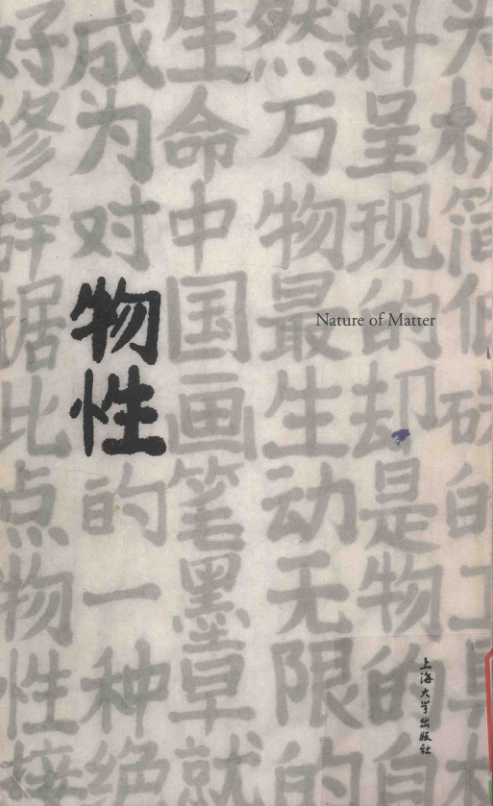 为极简低碳的工具材
料呈现的却是物的自
然万物最生动无限的
生命中国画笔墨早就
成为对物性的一种绝
好修辞据此点物性接
Nature of Matter
上海大学出版社